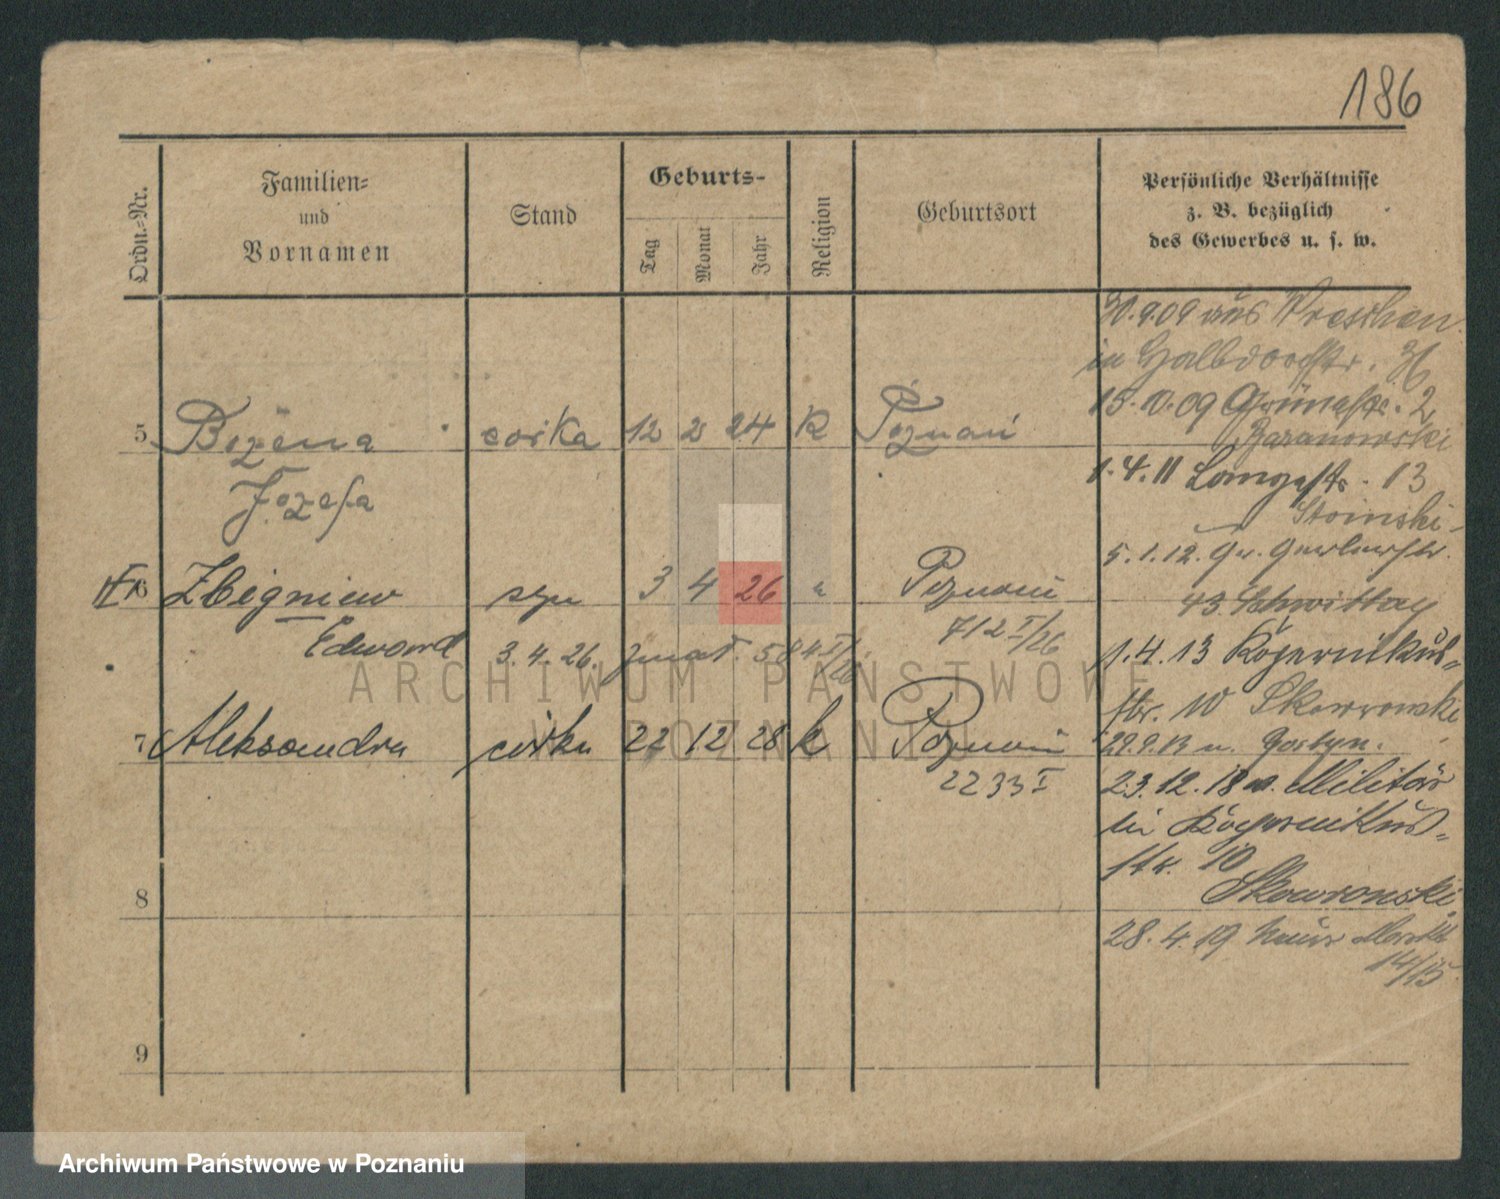 186
Ordn.-Nr.
Familien-
und
Vornamen
Stand
Geburts-
Tag
Monat
Jahr
Religion
Geburtsort
Persönliche Verhältnisse
z. B. bezüglich
des Gewerbes u. s. w.
30.9.09 aus Wreschen
in Halbdorfstr. 36
15.10.09 Grünestr. 2
Baranowski
5 Bożena córka 12 2 24 K Poznań
Józefa
1.4.11 Langestr. 13
Stoinski
6 Zbigniew syn 3 4 26 Poznań
Edward 3.4.26. zmarł 584 I/26
712 I/26
5.1.12. Gr. Gerberstr.
43 Schwittay
1.4.13 Kopernikus-
str. 10 Skowronski
7 Aleksandra córka 22 12 28 k Poznań
2233 I
29.9.13 n. Gostyn.
23.12.18 v. Militär
in Kopernikus-
str. 10
Skowronski
8
28.4.19 Neuer Markt
14/15
9
ARCHIWUM PAŃSTWOWE
W POZNANIU
Archiwum Państwowe w Poznaniu